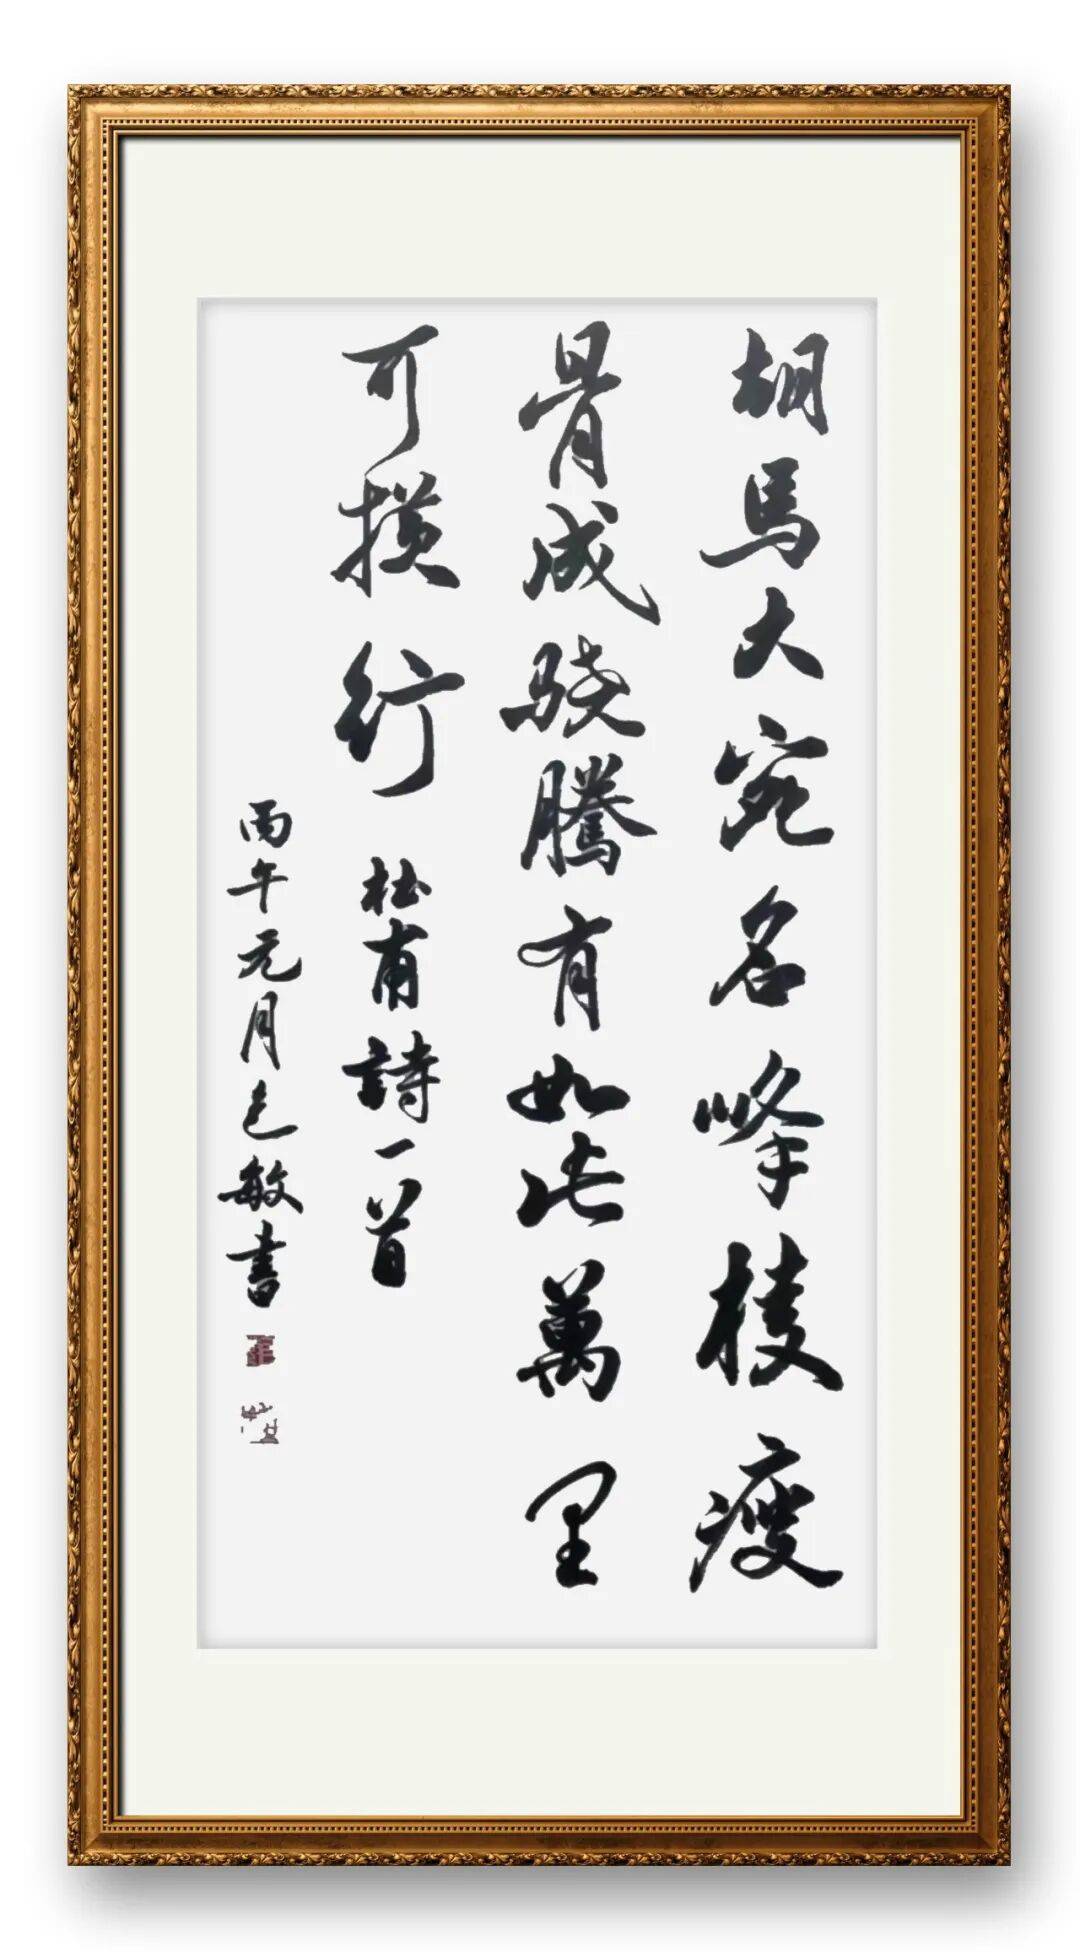 胡馬大宛名峰棱瘦
骨成骁騰有如此萬里
可横行 杜甫詩一首
丙午元月敏書